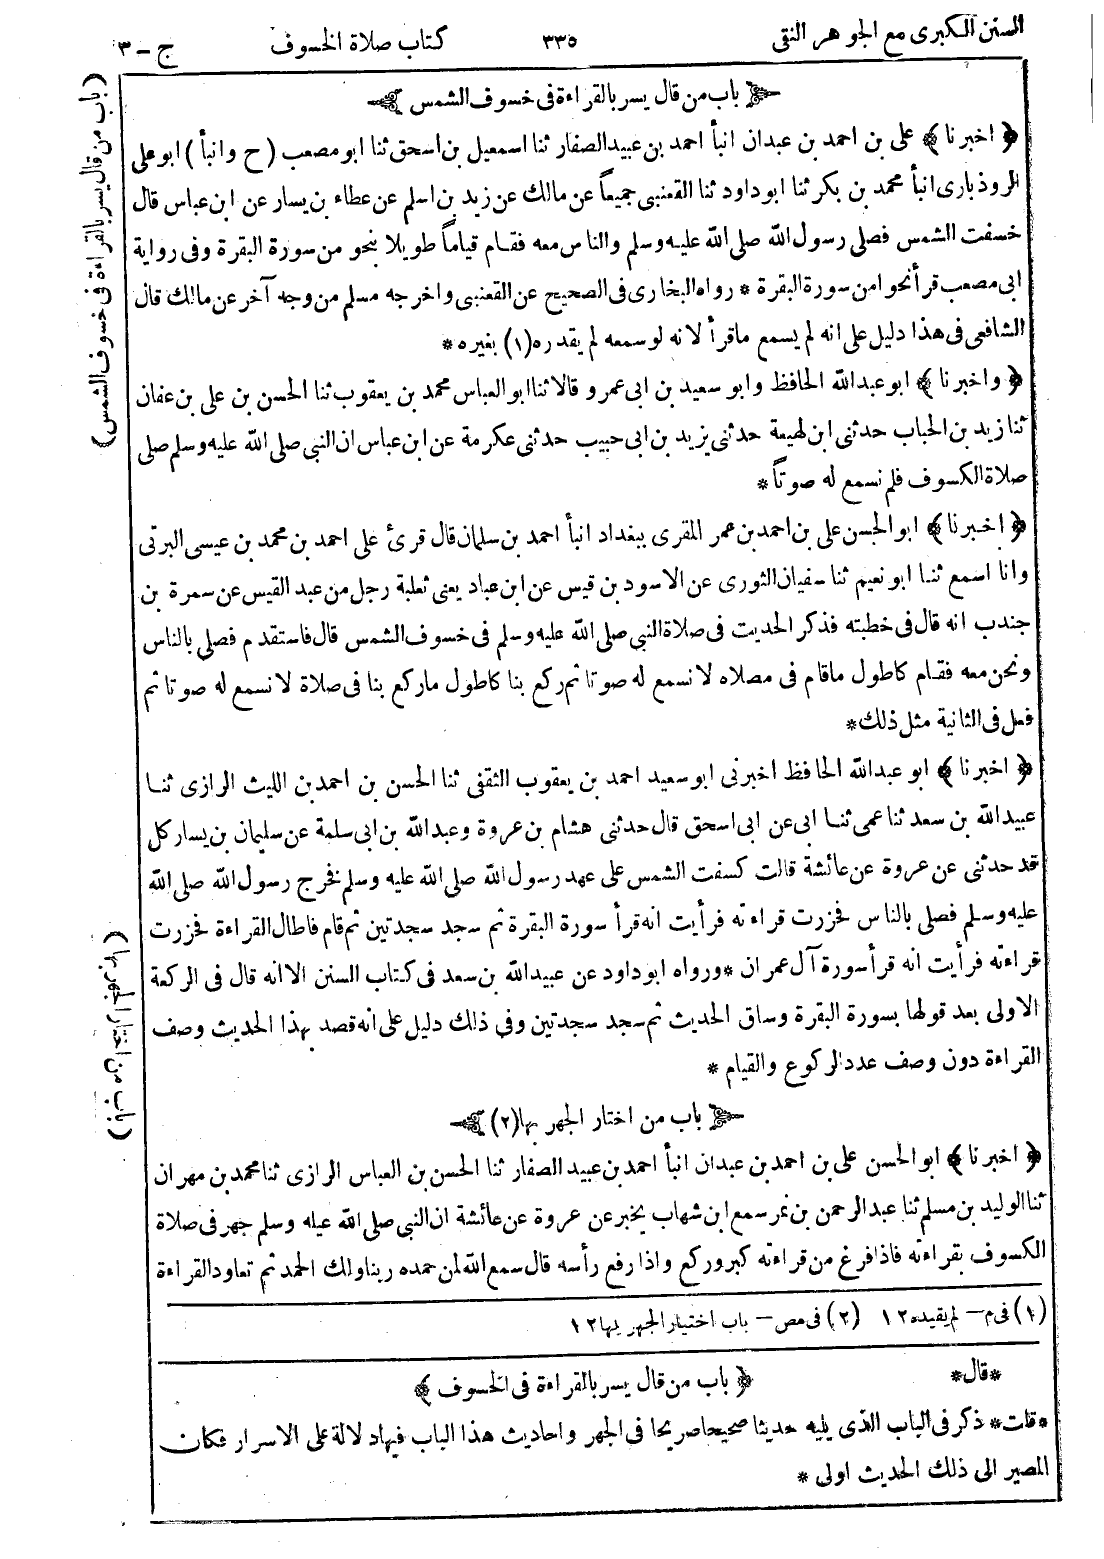 السنن الكبرى مع الجوهر النقى ٣٣٥ كتاب صلاة الخسوف ج - ٣
﴿ باب من قال يسر بالقراءة فى خسوف الشمس ﴾
﴿ اخبرنا ﴾ على بن احمد بن عبدان انبأ احمد بن عبيد الصفار ثنا اسمعيل بن اسحق ثنا ابو مصعب ( ح وانبأ ) ابو على
الروذبارى انبأ محمد بن بكر ثنا ابو داود ثنا القعنبى جميعاً عن مالك عن زيد بن اسلم عن عطاء بن يسار عن ابن عباس قال
خسفت الشمس فصلى رسول الله صلى الله عليه وسلم والناس معه فقام قياماً طويلا بنحو من سورة البقرة وفى رواية
ابى مصعب قرأ نحوا من سورة البقرة * رواه البخارى فى الصحيح عن القعنبى واخرجه مسلم من وجه آخر عن مالك قال
الشافعى فى هذا دليل على انه لم يسمع ما قرأ لانه لو سمعه لم يقدره (١) بغيره *
﴿ واخبرنا ﴾ ابو عبد الله الحافظ وابو سعيد بن ابى عمرو قالا ثنا ابو العباس محمد بن يعقوب ثنا الحسن بن على بن عفان
ثنا زيد بن الحباب حدثنى ابن لهيعة حدثنى يزيد بن ابى حبيب حدثنى عكرمة عن ابن عباس ان النبى صلى الله عليه وسلم صلى
صلاة الكسوف فلم نسمع له صوتاً *
﴿ اخبرنا ﴾ ابو الحسن على بن احمد بن عمر المقرى ببغداد انبأ احمد بن سلمان قال قرئ على احمد بن محمد بن عيسى البرتى
وانا اسمع ثنا ابو نعيم ثنا سفيان الثورى عن الاسود بن قيس عن ابن عباد يعنى ثعلبة رجل من عبد القيس عن سمرة بن
جندب انه قال فى خطبته فذكر الحديث فى صلاة النبى صلى الله عليه وسلم فى خسوف الشمس قال فاستقدم فصلى بالناس
ونحن معه فقام كاطول ما قام فى مصلاه لا نسمع له صوتا ثم ركع بنا كاطول ما ركع بنا فى صلاة لا نسمع له صوتا ثم
فعل فى الثانية مثل ذلك *
﴿ اخبرنا ﴾ ابو عبد الله الحافظ اخبرنى ابو سعيد احمد بن يعقوب الثقفى ثنا الحسن بن احمد بن الليث الرازى ثنا
عبيد الله بن سعد ثنا عمى ثنا ابى عن ابى اسحق قال حدثنى هشام بن عروة وعبد الله بن ابى سلمة عن سليمان بن يسار كل
قد حدثنى عن عروة عن عائشة قالت كسفت الشمس على عهد رسول الله صلى الله عليه وسلم فخرج رسول الله صلى الله
عليه وسلم فصلى بالناس فحزرت قراءته فرأيت انه قرأ سورة البقرة ثم سجد سجدتين ثم قام فاطال القراءة فحزرت
قراءته فرأيت انه قرأ سورة آل عمران * ورواه ابو داود عن عبيد الله بن سعد فى كتاب السنن الا انه قال فى الركعة
الاولى بعد قولها بسورة البقرة وساق الحديث ثم سجد سجدتين وفى ذلك دليل على انه قصد بهذا الحديث وصف
القراءة دون وصف عدد الركوع والقيام *
﴿ باب من اختار الجهر بها (٢) ﴾
﴿ اخبرنا ﴾ ابو الحسن على بن احمد بن عبدان انبأ احمد بن عبيد الصفار ثنا الحسن بن العباس الرازى ثنا محمد بن مهران
ثنا الوليد بن مسلم ثنا عبد الرحمن بن نمر سمع ابن شهاب يخبر عن عروة عن عائشة ان النبى صلى الله عليه وسلم جهر فى صلاة
الكسوف بقراءته فاذا فرغ من قراءته كبر وركع واذا رفع رأسه قال سمع الله لمن حمده ربنا ولك الحمد ثم تعاود القراءة
(١) فى م – لم يقيده ١٢ (٢) فى مص – باب اختيار الجهر بها ١٢
*قال* ﴿ باب من قال يسر بالقراءة فى الخسوف ﴾
*قلت* ذكر فى الباب الذى يليه حديثا صحيحا صريحا فى الجهر واحاديث هذا الباب فيها دلالة على الاسرار فكان
المصير الى ذلك الحديث اولى *
( باب من قال يسر بالقراءة فى خسوف الشمس )
( باب من اختار الجهر بها )